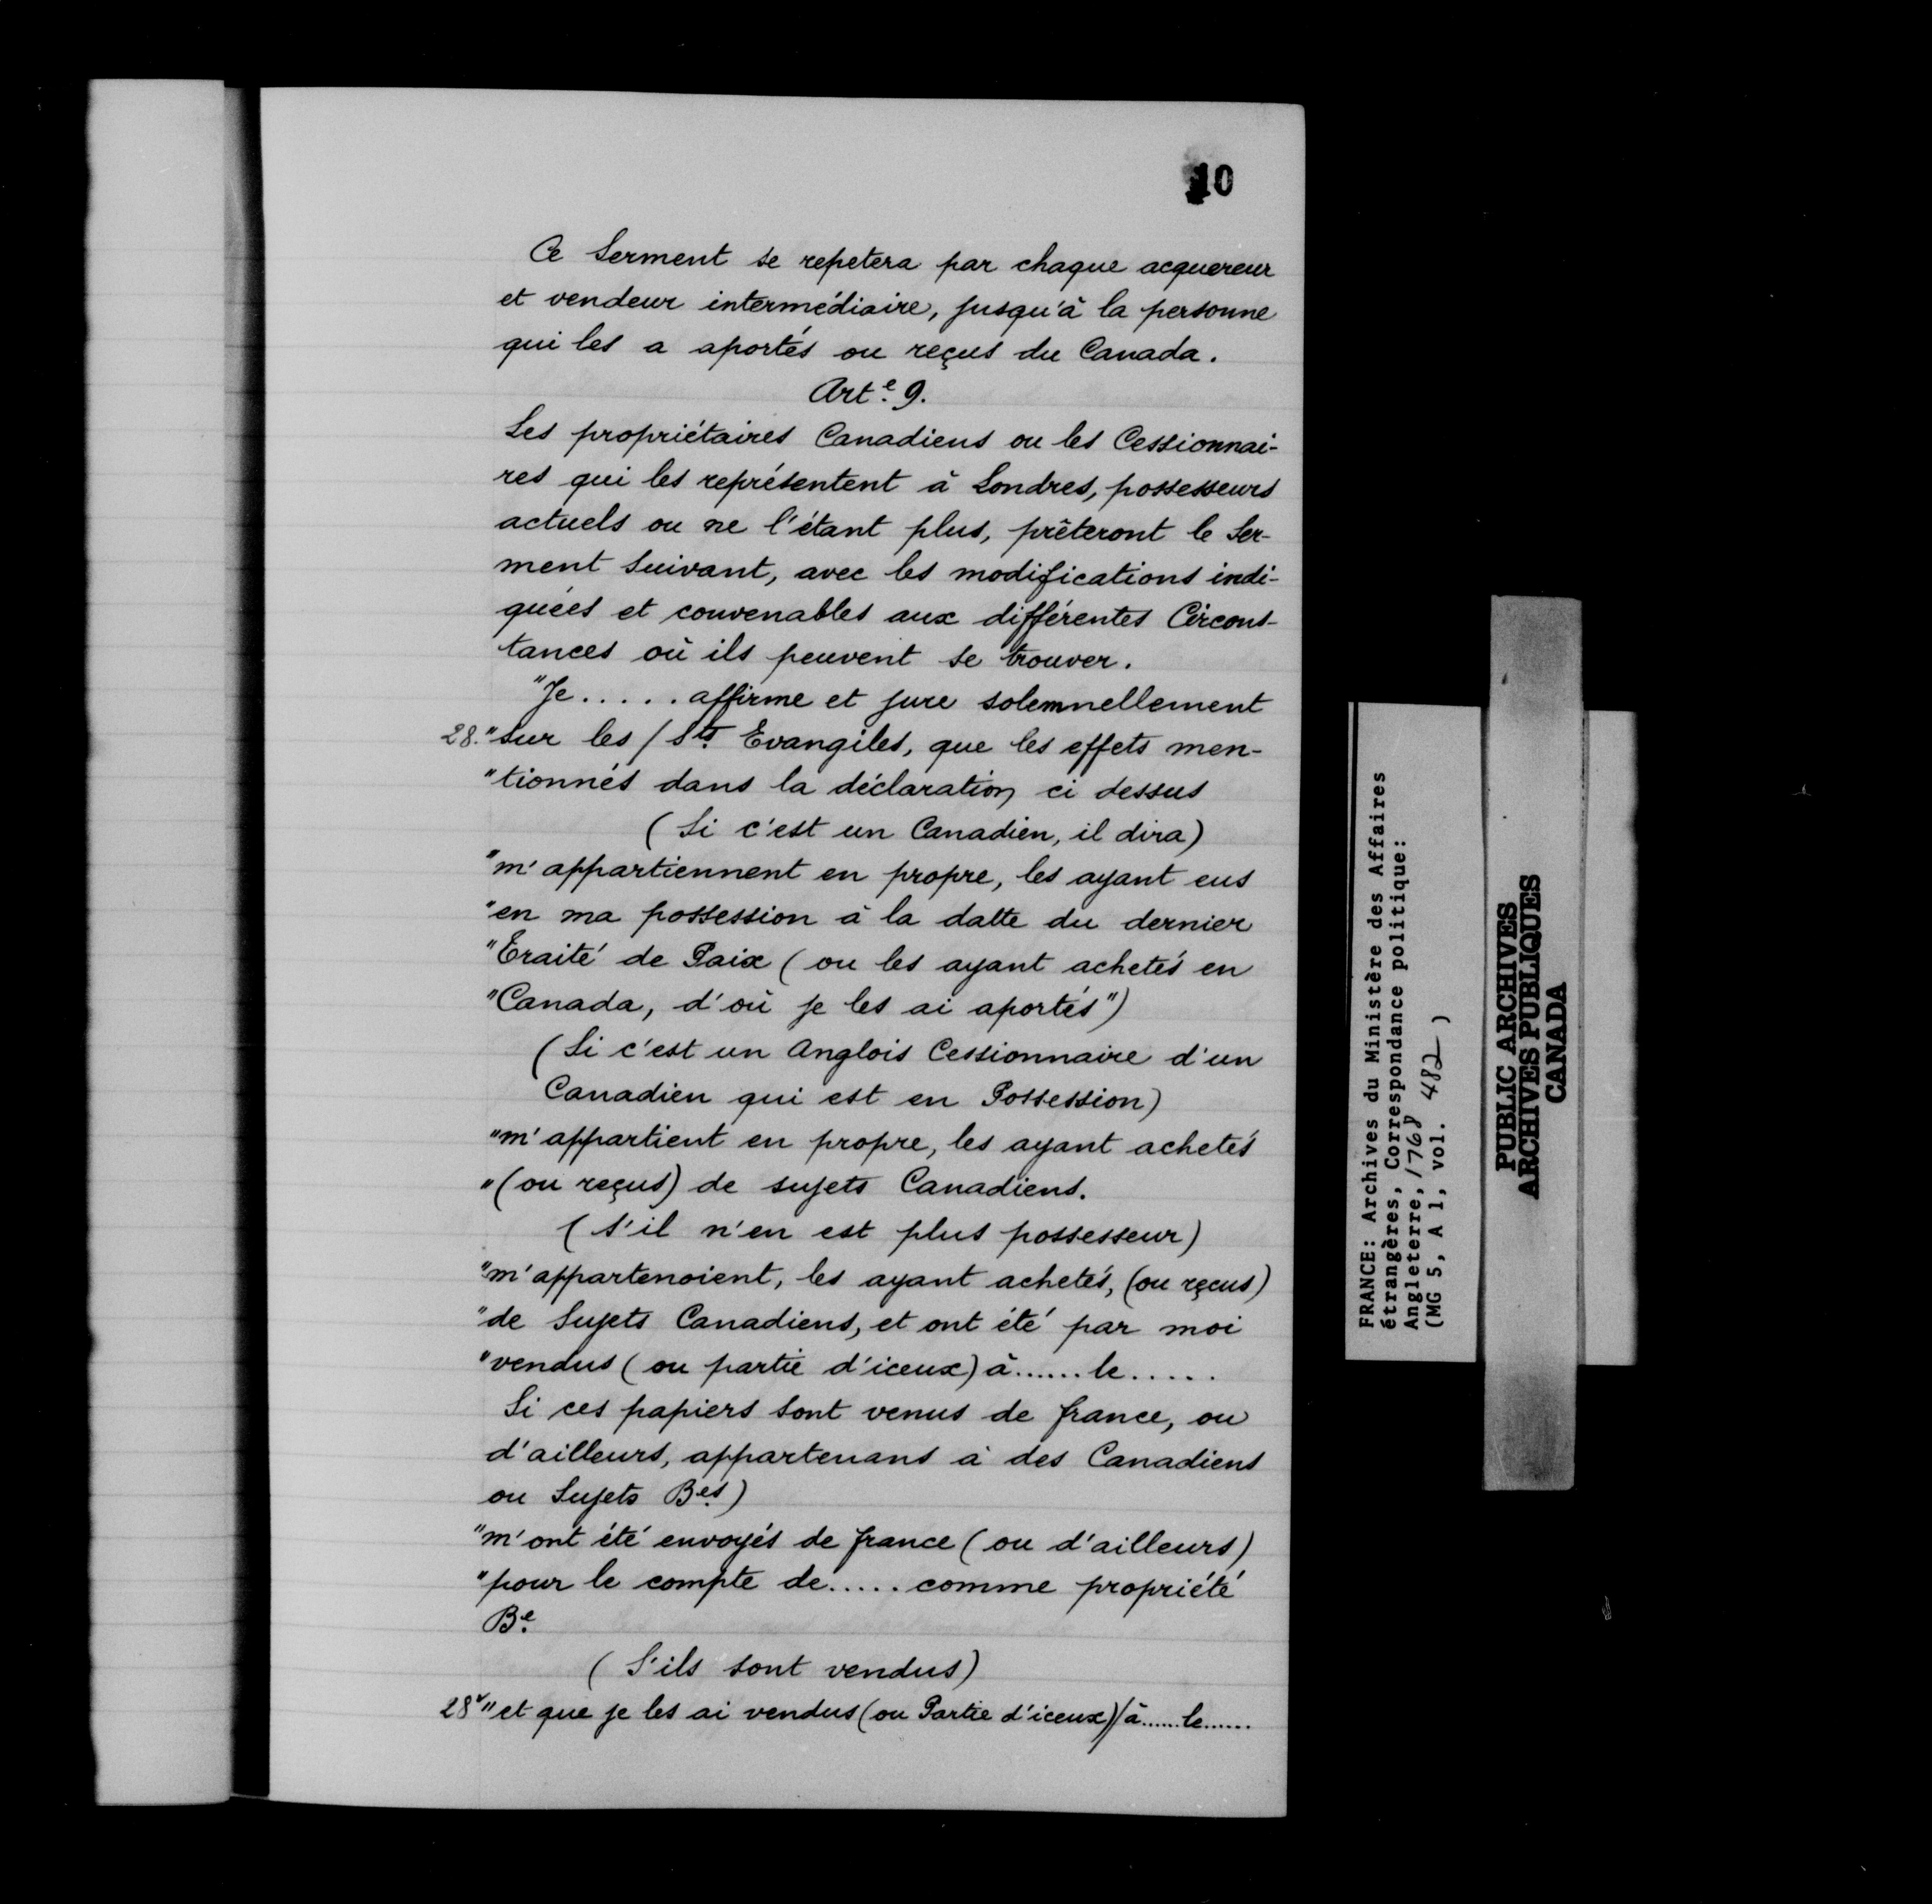 10
Ce Serment se repetera par chaque acquereur
et vendeur intermédiaire, jusqu'à la personne
qui les a aportés ou reçus du Canada.
Art.e 9.
Les propriétaires Canadiens ou les Cessionnai-
res qui les représentent à Londres, possesseurs
actuels ou ne l'étant plus, prêteront le Ser-
ment Suivant, avec les modifications indi-
quées et convenables aux différentes Circons-
tances où ils peuvent se trouver.
"Je..... affirme et jure solemnellement
28. "Sur les / Sts. Evangiles, que les effets men-
"tionnés dans la déclaration ci dessus
(Si c'est un Canadien, il dira)
"m'appartiennent en propre, les ayant eus
"en ma possession à la datte du dernier
"Traité de Paix (ou les ayant achetés en
"Canada, d'où je les ai aportés")
(Si c'est un Anglois Cessionnaire d'un
Canadien qui est en Possession)
"m'appartient en propre, les ayant achetés
"(ou reçus) de sujets Canadiens.
(S'il n'en est plus possesseur)
"m'appartenoient, les ayant achetés, (ou reçus)
"de Sujets Canadiens, et ont été par moi
"vendus (ou partie d'iceux) à...... le.....
Si ces papiers sont venus de france, ou
d'ailleurs, appartenans à des Canadiens
ou Sujets B.es)
"m'ont été envoyés de france (ou d'ailleurs)
"pour le compte de..... comme propriété
B.e
(S'ils sont vendus)
28v "et que je les ai vendus (ou Partie d'iceux)/à......le......
FRANCE: Archives du Ministère des Affaires
étrangères, Correspondance politique:
Angleterre, 1768
(MG 5, A 1, vol. 482)
PUBLIC ARCHIVES
ARCHIVES PUBLIQUES
CANADA